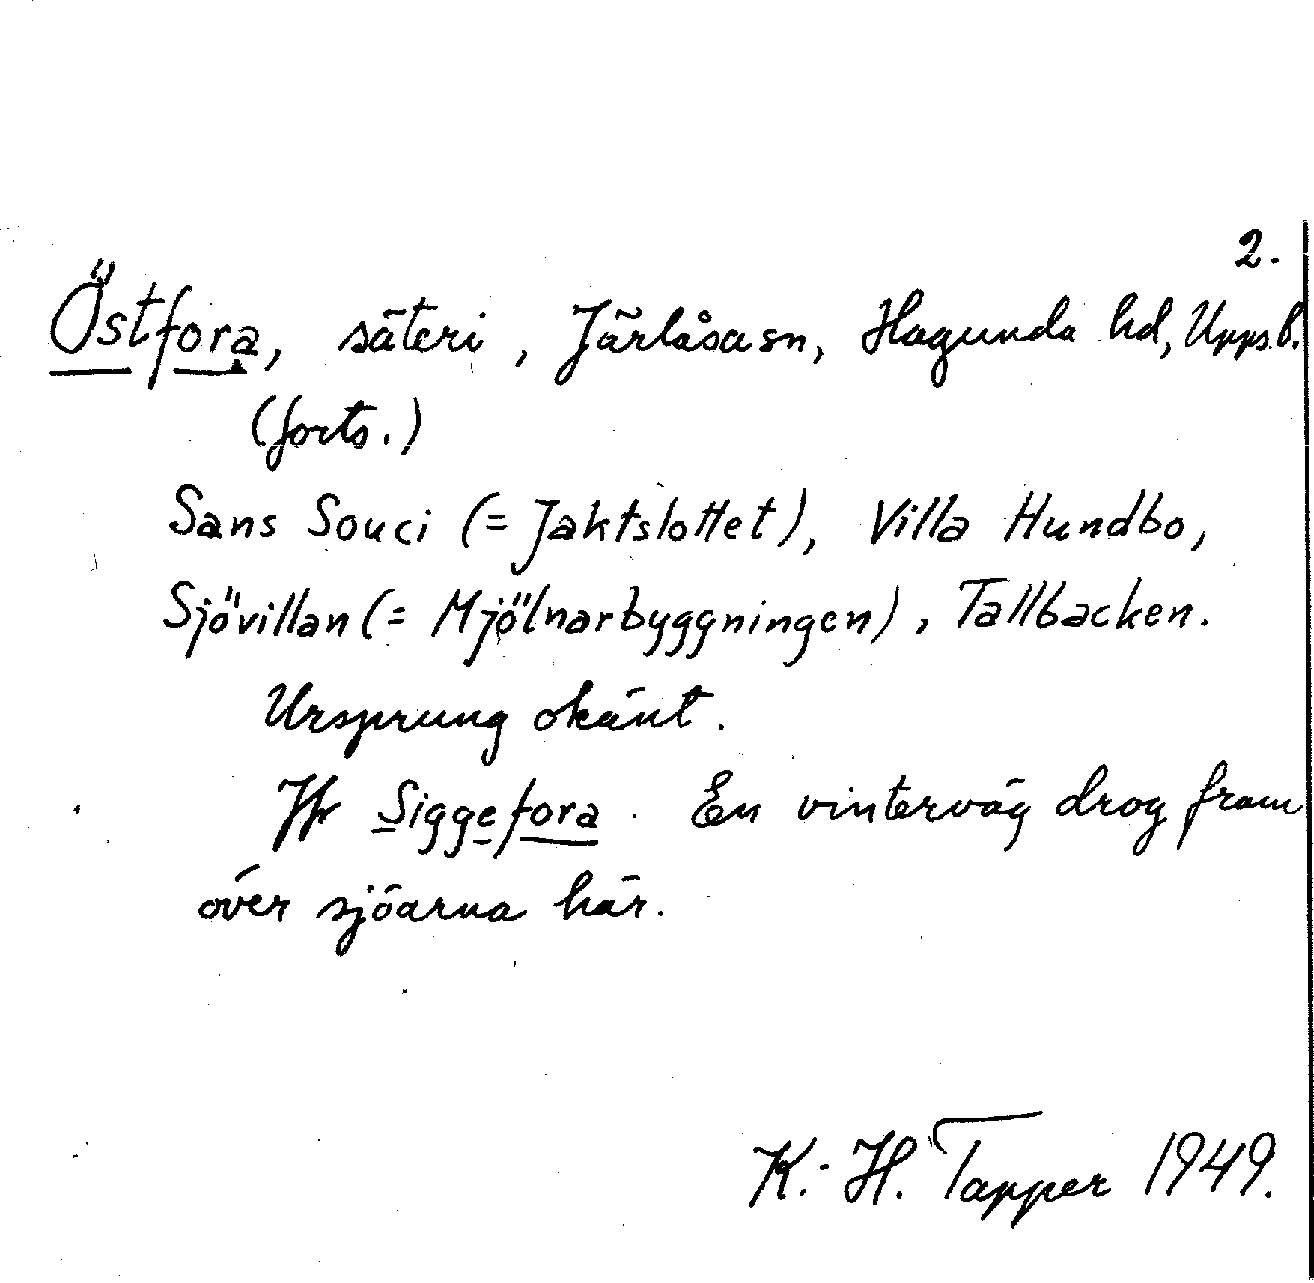 2.
Östfora, säteri, Järlåsa sn, Hagunda hd, Upps.l.
(forts.)
Sans Souci (= Jaktslottet), Villa Hundbo,
Sjövillan (= Mjölnarbyggningen), Tallbacken.
Ursprung okänt.
Jfr Siggefora. En vinterväg drog fram
över sjöarna här.
K.-H. Tapper 1949.